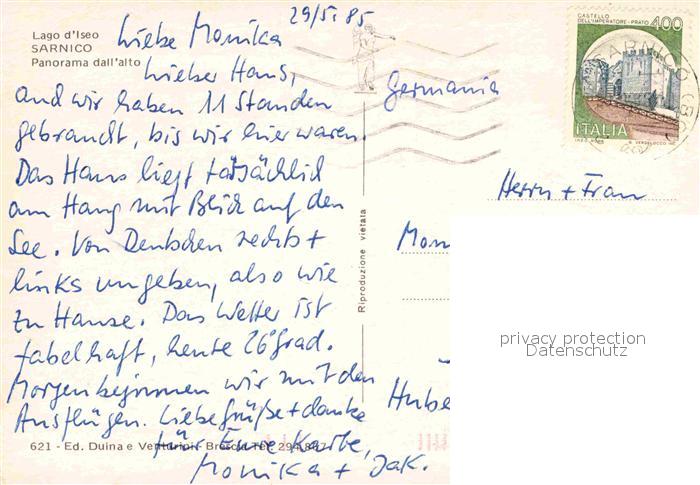 29/5.85
Lago d'Iseo
SARNICO
Panorama dall'alto
Liebe Monika
Lieber Hans,
auch wir haben 11 Stunden
gebraucht, bis wir hier waren.
Das Haus liegt tatsächlich
am Hang mit Blick auf den
See. Von Deutschen rechts +
links umgeben, also wie
zu Hause. Das Wetter ist
fabelhaft, heute 26 Grad.
Morgen beginnen wir mit den
Ausflügen. Liebe Grüße + danke
für Eure Karte,
Monika + Jak.
621 - Ed. Duina e Venturini - Brescia Tel.
Riproduzione vietata
CASTELLO
DELL'IMPERATORE - PRATO
400
ITALIA
SARNICO
Germania
Herrn + Frau
Mon
Hube
privacy protection
Datenschutz